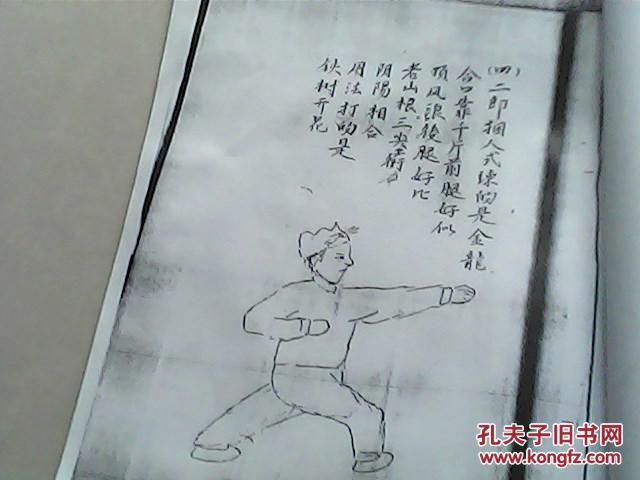 (四)二郎捆人式练的是金龍
合口靠千斤前腿好似
顶风浪後腿好比
老山根三尖
阴陽相合
用法打的是
伙树开花
孔夫子旧书网
www.kongfz.com